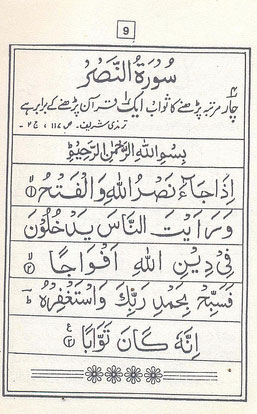 9
سُوْرَةُ النَّصْرُ
چار مرتبہ پڑھنے کا ثواب ایک قرآن پڑھنے کے برابر ہے
ترمذی شریف۔ ص ۱۱۷، ج ۲۔
بِسْمِ اللهِ الرَّحْمٰنِ الرَّحِيْمِ
اِذَا جَآءَ نَصْرُ اللهِ وَالْفَتْحُ ۙ﴿۱﴾
وَ رَاَيْتَ النَّاسَ يَدْخُلُوْنَ
فِيْ دِيْنِ اللهِ اَفْوَاجًا ۙ﴿۲﴾
فَسَبِّحْ بِحَمْدِ رَبِّكَ وَاسْتَغْفِرْهُ ؕ
اِنَّهٗ كَانَ تَوَّابًا ﴿۳﴾ ع